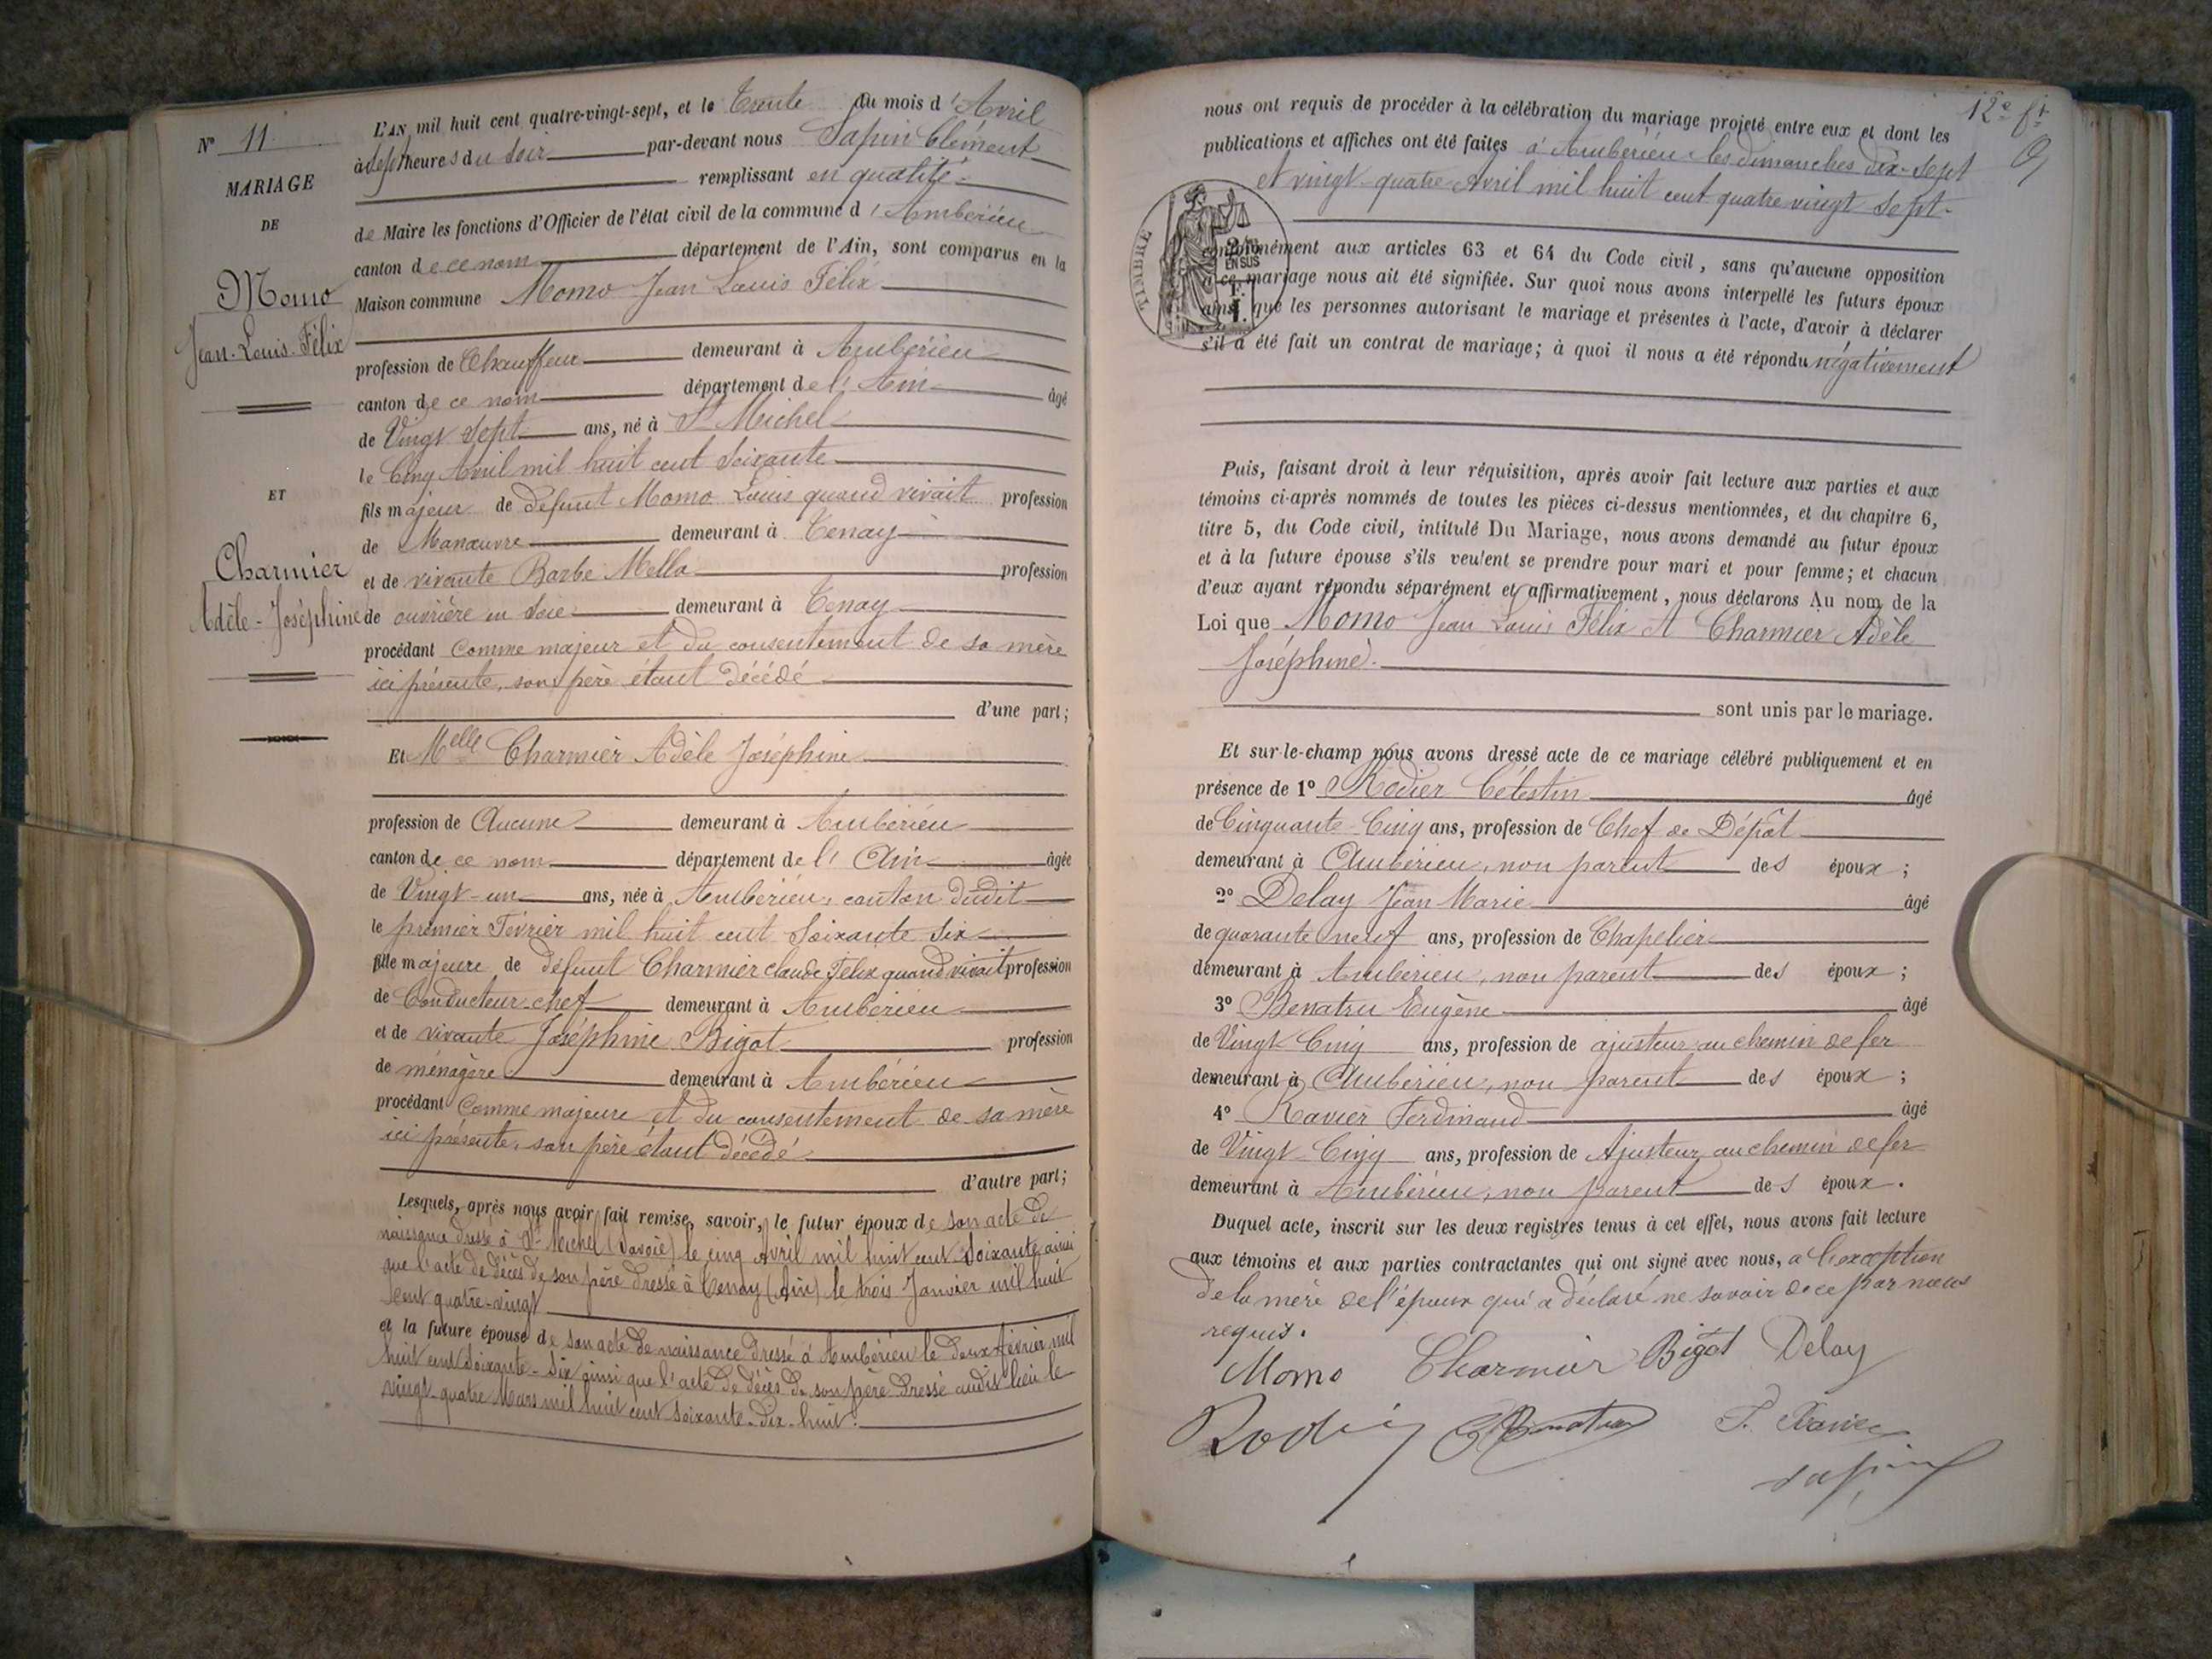 N° 11
MARIAGE
DE
Momo
Jean-Louis-Félix
ET
Charmier
Adèle-Joséphine
L'AN mil huit cent quatre-vingt-sept, et le Trente du mois d'Avril
à Sept heures du Soir par-devant nous Sapin Clément
remplissant en qualité
de Maire les fonctions d'Officier de l'état civil de la commune d'Ambérieu
canton de ce nom département de l'Ain, sont comparus en la
Maison commune Momo Jean Louis Félix
profession de Chauffeur demeurant à Ambérieu
canton de ce nom département de l'Ain âgé
de Vingt Sept ans, né à St Michel
le Cinq Avril mil huit cent Soixante
fils majeur de défunt Momo Louis quand vivait profession
de Manœuvre demeurant à Tenay
et de vivante Barbe Mella profession
de ouvrière en Soie demeurant à Tenay
procédant comme majeur et du consentement de sa mère
ici présente, son père étant décédé
d'une part;
Et Melle Charmier Adèle Joséphine
profession de Aucune demeurant à Ambérieu
canton de ce nom département de l'Ain âgée
de Vingt-un ans, née à Ambérieu, canton dudit
le premier Février mil huit cent Soixante Six
fille majeure de défunt Charmier claude Félix quand vivait profession
de Conducteur-chef demeurant à Ambérieu
et de vivante Joséphine Bigot profession
de ménagère demeurant à Ambérieu
procédant comme majeure et du consentement de sa mère
ici présente, son père étant décédé
d'autre part;
Lesquels, après nous avoir fait remise, savoir, le futur époux de son acte de
naissance dressé à St Michel (Savoie) le cinq Avril mil huit cent Soixante ainsi
que l'acte de décès de son père dressé à Tenay (Ain) le trois Janvier mil huit
cent quatre-vingt
et la future épouse de son acte de naissance dressé à Ambérieu le deux février mil
huit cent Soixante-Six ainsi que l'acte de décès de son père dressé audit lieu le
vingt-quatre Mars mil huit cent Soixante-Dix-huit.
12e ft
nous ont requis de procéder à la célébration du mariage projeté entre eux et dont les
publications et affiches ont été faites à Ambérieu les dimanches dix-Sept
et vingt-quatre Avril mil huit cent quatre vingt Sept.
TIMBRE
EN SUS
conformément aux articles 63 et 64 du Code civil, sans qu'aucune opposition
à ce mariage nous ait été signifiée. Sur quoi nous avons interpellé les futurs époux
ainsi que les personnes autorisant le mariage et présentes à l'acte, d'avoir à déclarer
s'il a été fait un contrat de mariage; à quoi il nous a été répondu négativement
Puis, faisant droit à leur réquisition, après avoir fait lecture aux parties et aux
témoins ci-après nommés de toutes les pièces ci-dessus mentionnées, et du chapitre 6,
titre 5, du Code civil, intitulé Du Mariage, nous avons demandé au futur époux
et à la future épouse s'ils veulent se prendre pour mari et pour femme; et chacun
d'eux ayant répondu séparément et affirmativement, nous déclarons Au nom de la
Loi que Momo Jean Louis Félix et Charmier Adèle
Joséphine.
sont unis par le mariage.
Et sur-le-champ nous avons dressé acte de ce mariage célébré publiquement et en
présence de 1° Rodier Célestin âgé
de Cinquante-Cinq ans, profession de Chef de Dépôt
demeurant à Ambérieu, non parent des époux;
2° Delay Jean Marie âgé
de quarante neuf ans, profession de Chapelier
demeurant à Ambérieu, non parent des époux;
3° Benatru Eugène âgé
de Vingt Cinq ans, profession de ajusteur au chemin de fer
demeurant à Ambérieu, non parent des époux;
4° Ravier Ferdinand âgé
de Vingt-Cinq ans, profession de Ajusteur au chemin de fer
demeurant à Ambérieu, non parent des époux.
Duquel acte, inscrit sur les deux registres tenus à cet effet, nous avons fait lecture
aux témoins et aux parties contractantes qui ont signé avec nous, à l'exception
de la mère de l'époux qui a déclaré ne savoir de ce par nous
requis.
Momo Charmier Bigot Delay
Rodier E Benatru F. Ravier
Sapin